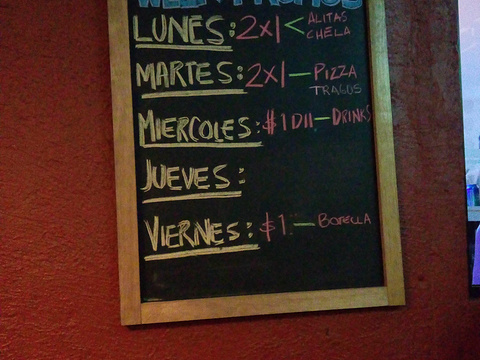 LUNES: 2x1 < ALITAS
CHELA
MARTES: 2x1 — PIZZA
TRAGOS
MIERCOLES: $1 DII — DRINKS
JUEVES:
VIERNES: $1 — BOTELLA